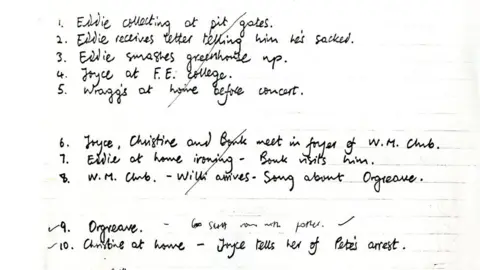 1. Eddie collecting at pit gates.
2. Eddie receives letter telling him he's sacked.
3. Eddie smashes greenhouse up.
4. Joyce at F.E. college.
5. Wragg's at home before concert.
6. Joyce, Christine and Bonk meet in foyer of W.M. Club.
7. Eddie at home ironing - Bonk visits him.
8. W.M. Club. - Willi arrives - Song about Orgreave.
9. Orgreave. -
10. Christine at home - Joyce tells her of Pete's arrest.